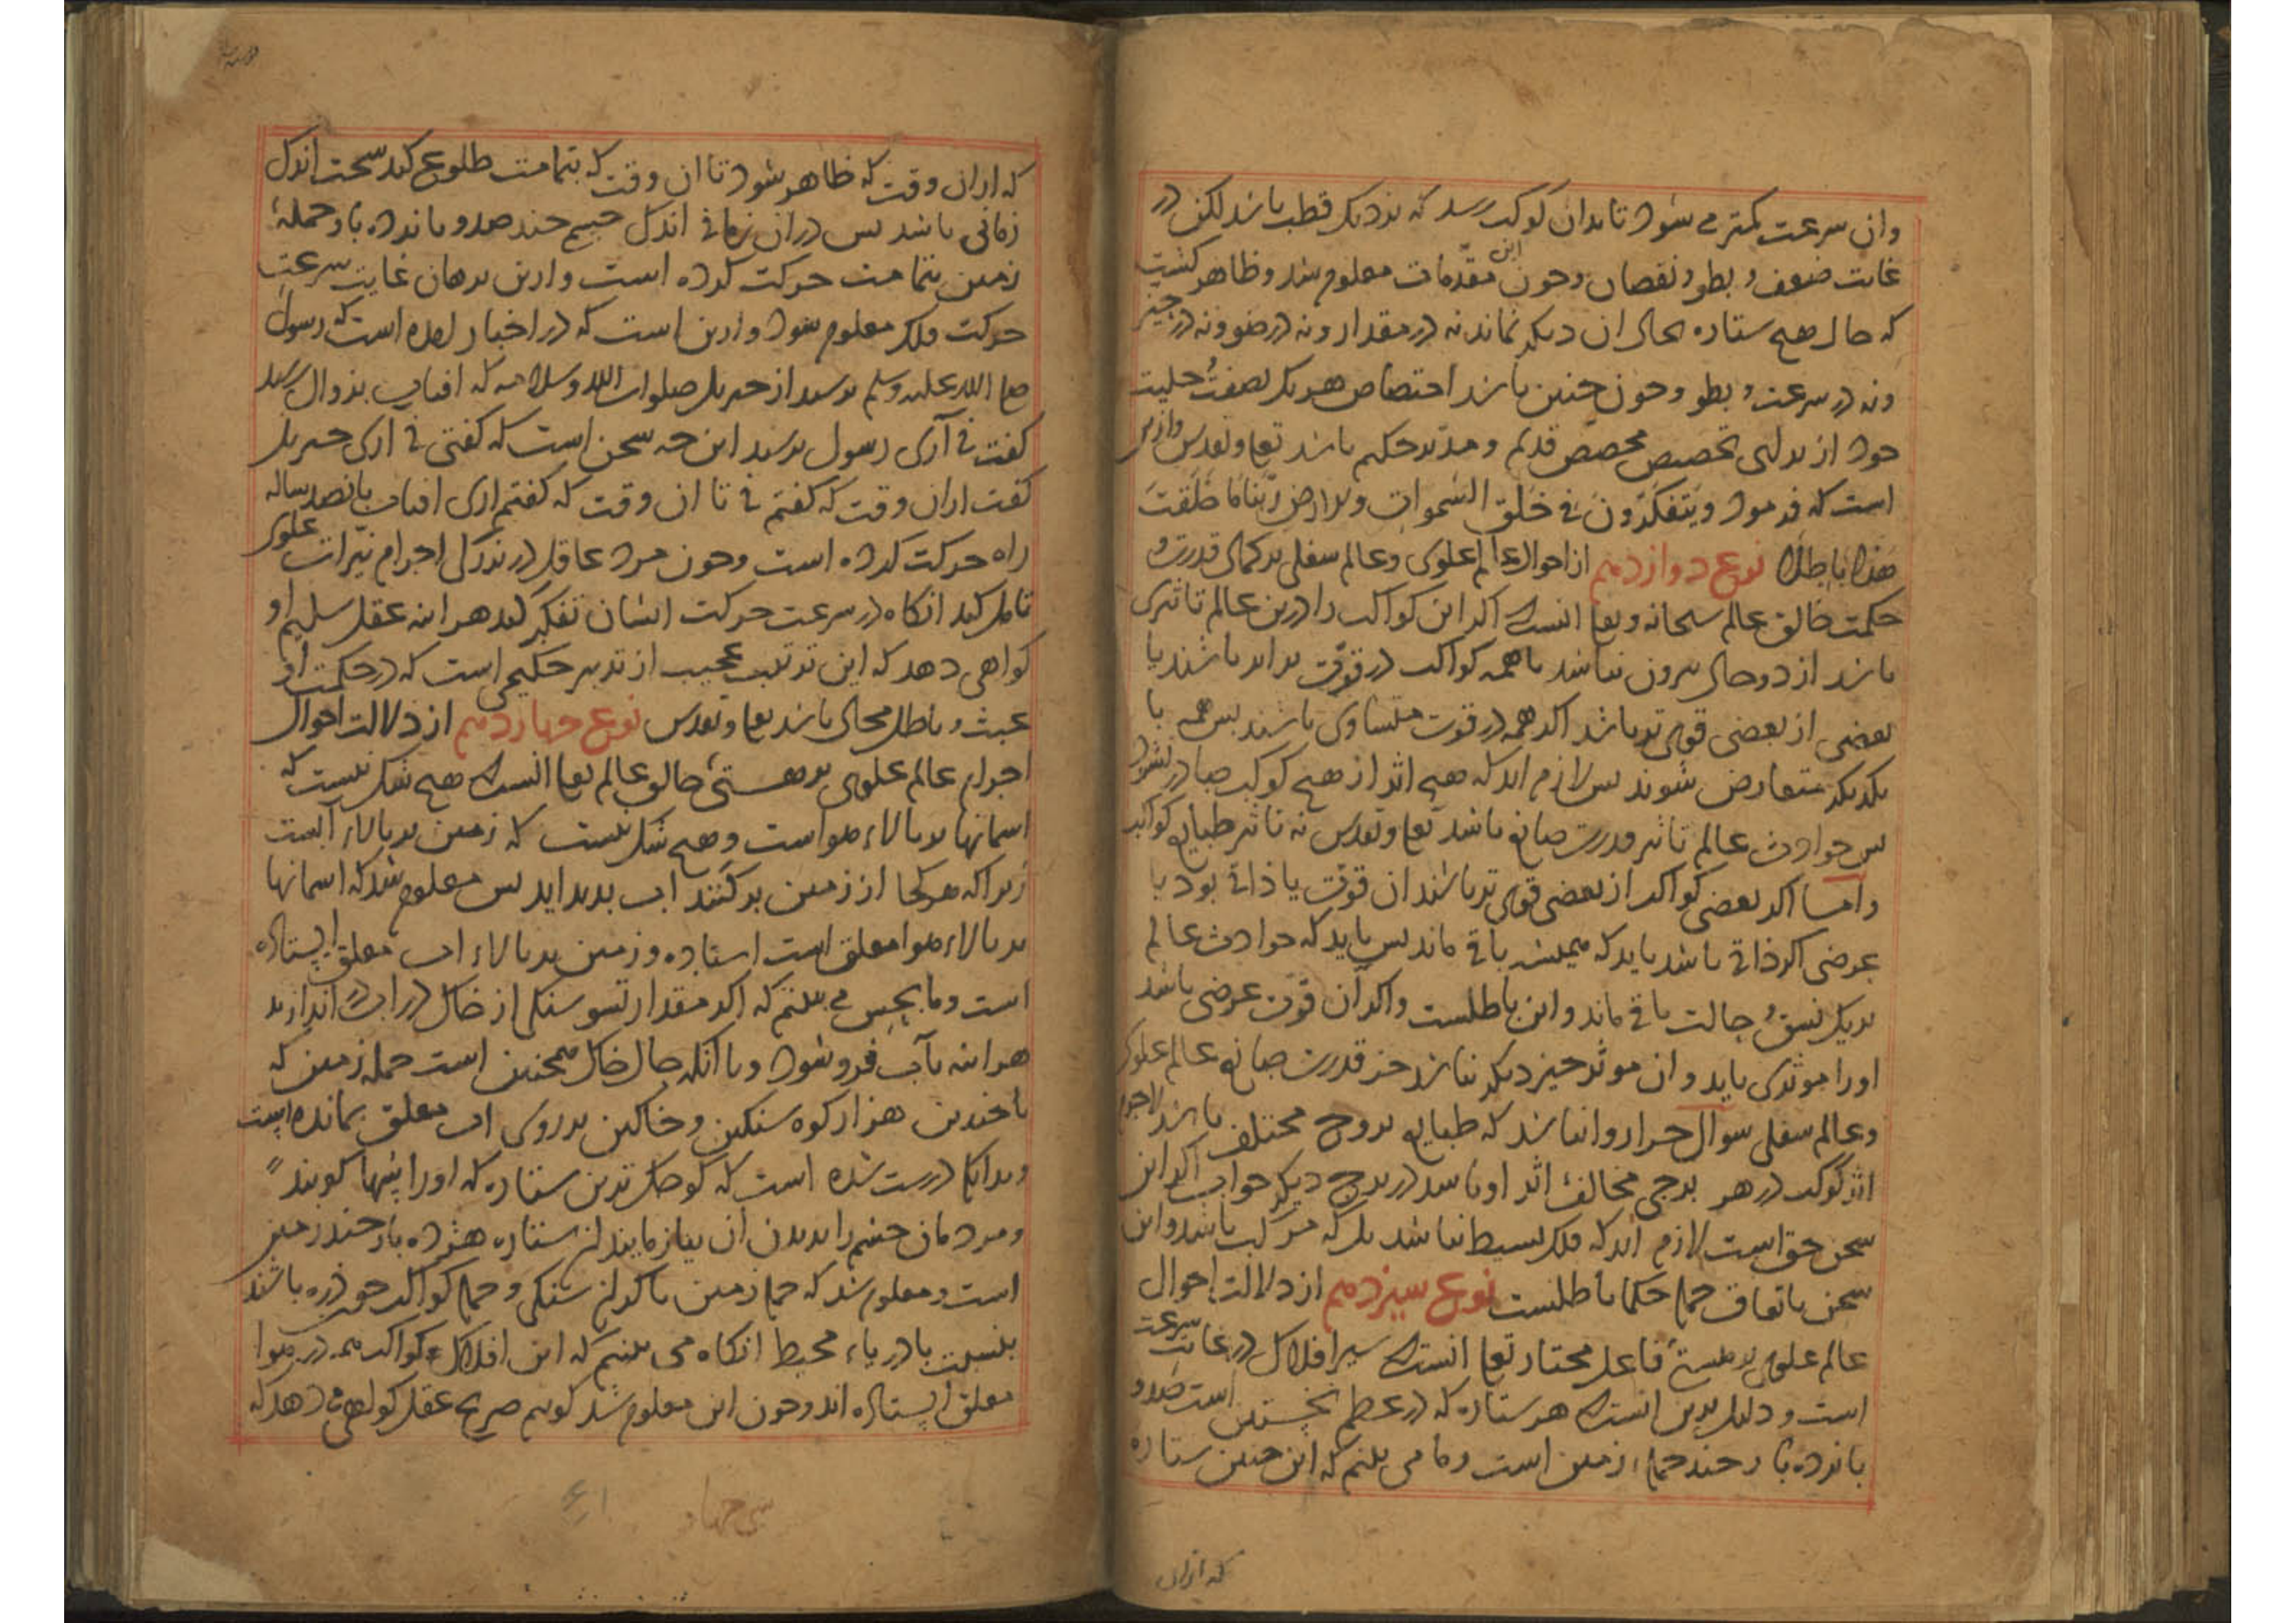 وان سرعت کمتر می شود تا بدان کوکب رسد که نزدیک قطب باشد لکن در
غایت ضعف و بطو و نقصان و چون این مقدمات معلوم شد و ظاهر گشت
که حال هیچ ستاره بحال ان دیگر نماند نه در مقدار و نه در ضو و نه در حیز
و نه در سرعت و بطو و چون چنین باشد اختصاص هر یک بصفت و حلیت
خود از برای تخصیص مخصص قدیم و مدبر حکیم باشد تعا و تقدس و از این
است که فرمود و یتفکرون فی خلق السموات والارض ربنا ما خلقت
هذا باطلا نوع دوازدهم از احوال عالم علوی و عالم سفلی بر کمال قدرت و
حکمت خالق عالم سبحانه و تعا انست که اگر این کواکب را درین عالم تاثیری
باشد از دو حال بیرون نباشد یا همه کواکب در قوت برابر باشند یا
بعضی از بعضی قوی تر باشد اگر همه در قوت متساوی باشند پس همه با
یکدیگر متعارض شوند پس لازم اید که هیچ اثر از هیچ کوکب صادر نشود
پس حوادث عالم تاثیر قدرت صانع باشد تعا و تقدس نه تاثیر طبایع کواکب
و اما اگر بعضی کواکب از بعضی قوی تر باشند ان قوت یا ذاتی بود یا
عرضی اگر ذاتی باشد باید که همیشه باقی ماند پس باید که حوادث عالم
بر یک نسق و حالت باقی ماند و این باطلست و اگر آن قوت عرضی باشد
اورا موثری باید و ان موثر چیز دیگر نباشد جز قدرت صانع عالم علوی
و عالم سفلی سوال چرا روا نباشد که طبایع بروج مختلف باشد لاجرم
اثر کوکب در هر برجی مخالف اثر او باشد در برج دیگر جواب اگر این
سخن حق است لازم اید که فلک بسیط نباشد بل که مرکب باشد و این
سخن باتفاق جمله حکما باطلست نوع سیزدهم از دلالت احوال
عالم علوی بر هستی فاعل مختار تعا انست که سیر افلاک در غایت سرعت
است و دلیل برین انست که هر ستاره که در عظم نخستین است صد و
پانزده بار چند جمله زمین است و ما می بینیم که این چنین ستاره
که ازان
که ازان وقت که ظاهر شود تا ان وقت که بتمامت طلوع کند سخت اندک
زمانی باشد پس دران زمانی اندک جسم چند صد و پانزده بار جمله
زمین بتمامت حرکت کرده است و ازین برهان غایت سرعت
حرکت فلک معلوم شود و ازین است که در اخبار امده است که رسول
صلی الله علیه وسلم پرسید از جبریل صلوات الله وسلامه که افتاب بزوال رسید
گفت نی آری رسول پرسید این چه سخن است که گفتی نی اری جبریل
گفت ازان وقت که گفتم نی تا ان وقت که گفتم اری افتاب پانصد ساله
راه حرکت کرده است و چون مرد عاقل در بزرگی اجرام نیرات علوی
تامل کند انگاه در سرعت حرکت ایشان تفکر کند هر اینه عقل سلیم او
گواهی دهد که این ترتیب عجیب از تدبیر حکیمی است که در حکمت او
عبث و باطل محال باشد تعا و تقدس نوع چهاردهم از دلالت احوال
اجرام عالم علوی بر هستی خالق عالم تعا انست که هیچ شک نیست که
اسمانها بر بالاء هوا است و هیچ شک نیست که زمین بر بالاء آبست
زیرا که هر کجا از زمین برکنند اب پدید اید پس معلوم شد که اسمانها
بر بالاء هوا معلق است استاده و زمین بر بالاء اب معلق ایستاده
است و ما بحس می بینیم که اگر مقدار تسو سنگی از خاک در اب اندازند
هر اینه بآب فرو شود و با انکه حال خاک همچنین است جمله زمین که
با چندین هزار کوه سنگین و خاکین بر روی اب معلق بمانده است
و بدانک درست شده است که کوچک ترین ستاره که اورا سها گویند
و مردمان چشم را بدیدن ان بیازمایند ان ستاره هژده بار چند زمین
است و معلوم شد که جمله زمین با گران سنگی و جمله کواکب چون ذره باشند
بنسبت با دریاء محیط انگاه می بینیم که این افلاک و کواکب همه در هوا
معلق ایستاده اند و چون این معلوم شد گویم صریح عقل گواهی می دهد که